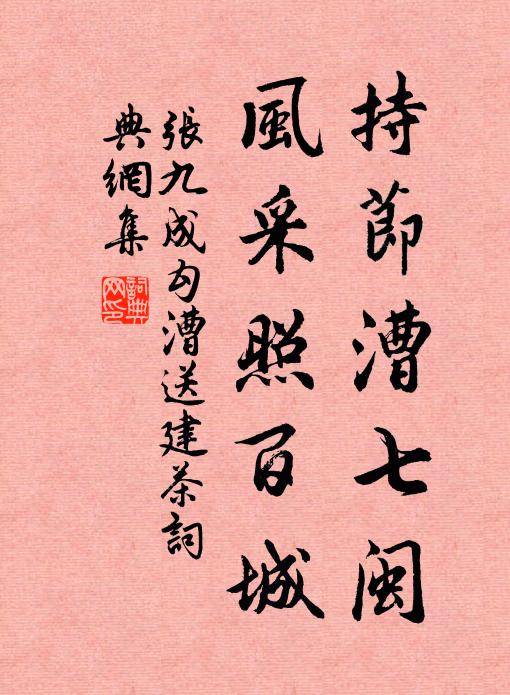 持節漕七閩
風采照百城
張九成句漕送建茶詞
典網集
詞典
网印